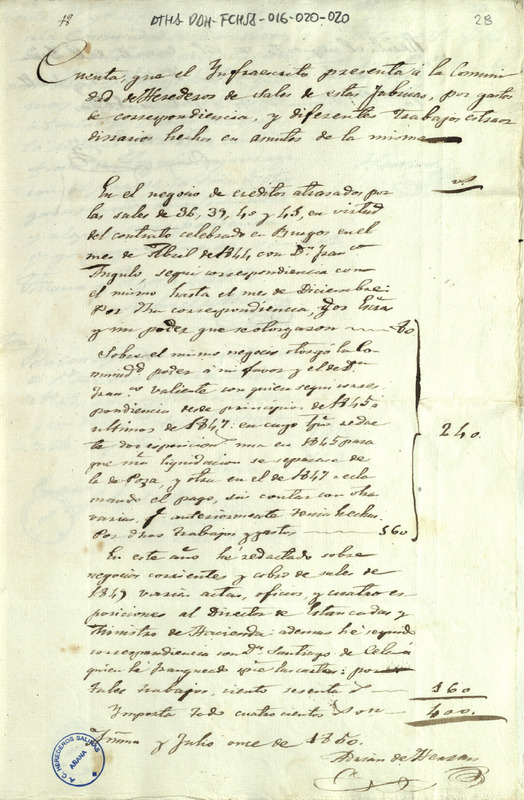 48 DTHS DOH-FCHSA-016-020-020 28
Cuenta, que el Ynfraescrito presenta á la Comuni
dad de Herederos de sales de estas fabricas, por gastos
de correspondiencia, y diferentes trabajos estraor
dinarios hechos en asuntos de la misma
En el negocio de creditos atrasados por
las sales de 36, 39, 40 y 43, en virtud
del contrato celebrado en Burgos en el
mes de Abril de 1844 con Dn. Franco
Angulo segui correspondiencia con
el mismo hasta el mes de Diciembre:
Por dha correspondiencia, dos
y un poder que se otorgaron 80
Sobre el mismo negocio otorgó la Co
munidd poder á mi favor y el de Dn.
Franco Valiente con quien segui corres
pondiencia desde principios de 1845 á
ultimos de 1847: en cuyo redac
te dos esposicions una en 1845 para
que nra liquidacion se separase de
la de Poza, y otra en el de 1847 recla
mando el pago, sin contar con otra
varias, q anteriormente tenia hechas.
Por dhos trabajos y gastos 160
240.
En este año hé redactado sobre
negocio corriente y cobro de sales de
1849 varias actas, oficios, y cuatro es
posiciones al Director de Estancadas y
Ministro de Hacienda: ademas hé seguido
correspondiencia con Dn. Santiago de
quien há franqueado las cartas: por
tales trabajos, ciento sesenta 160
Ymporta todo cuatrocientos 400.
Añana y Julio once de 1850.
A.C. HEREDEROS SALINAS
AÑANA